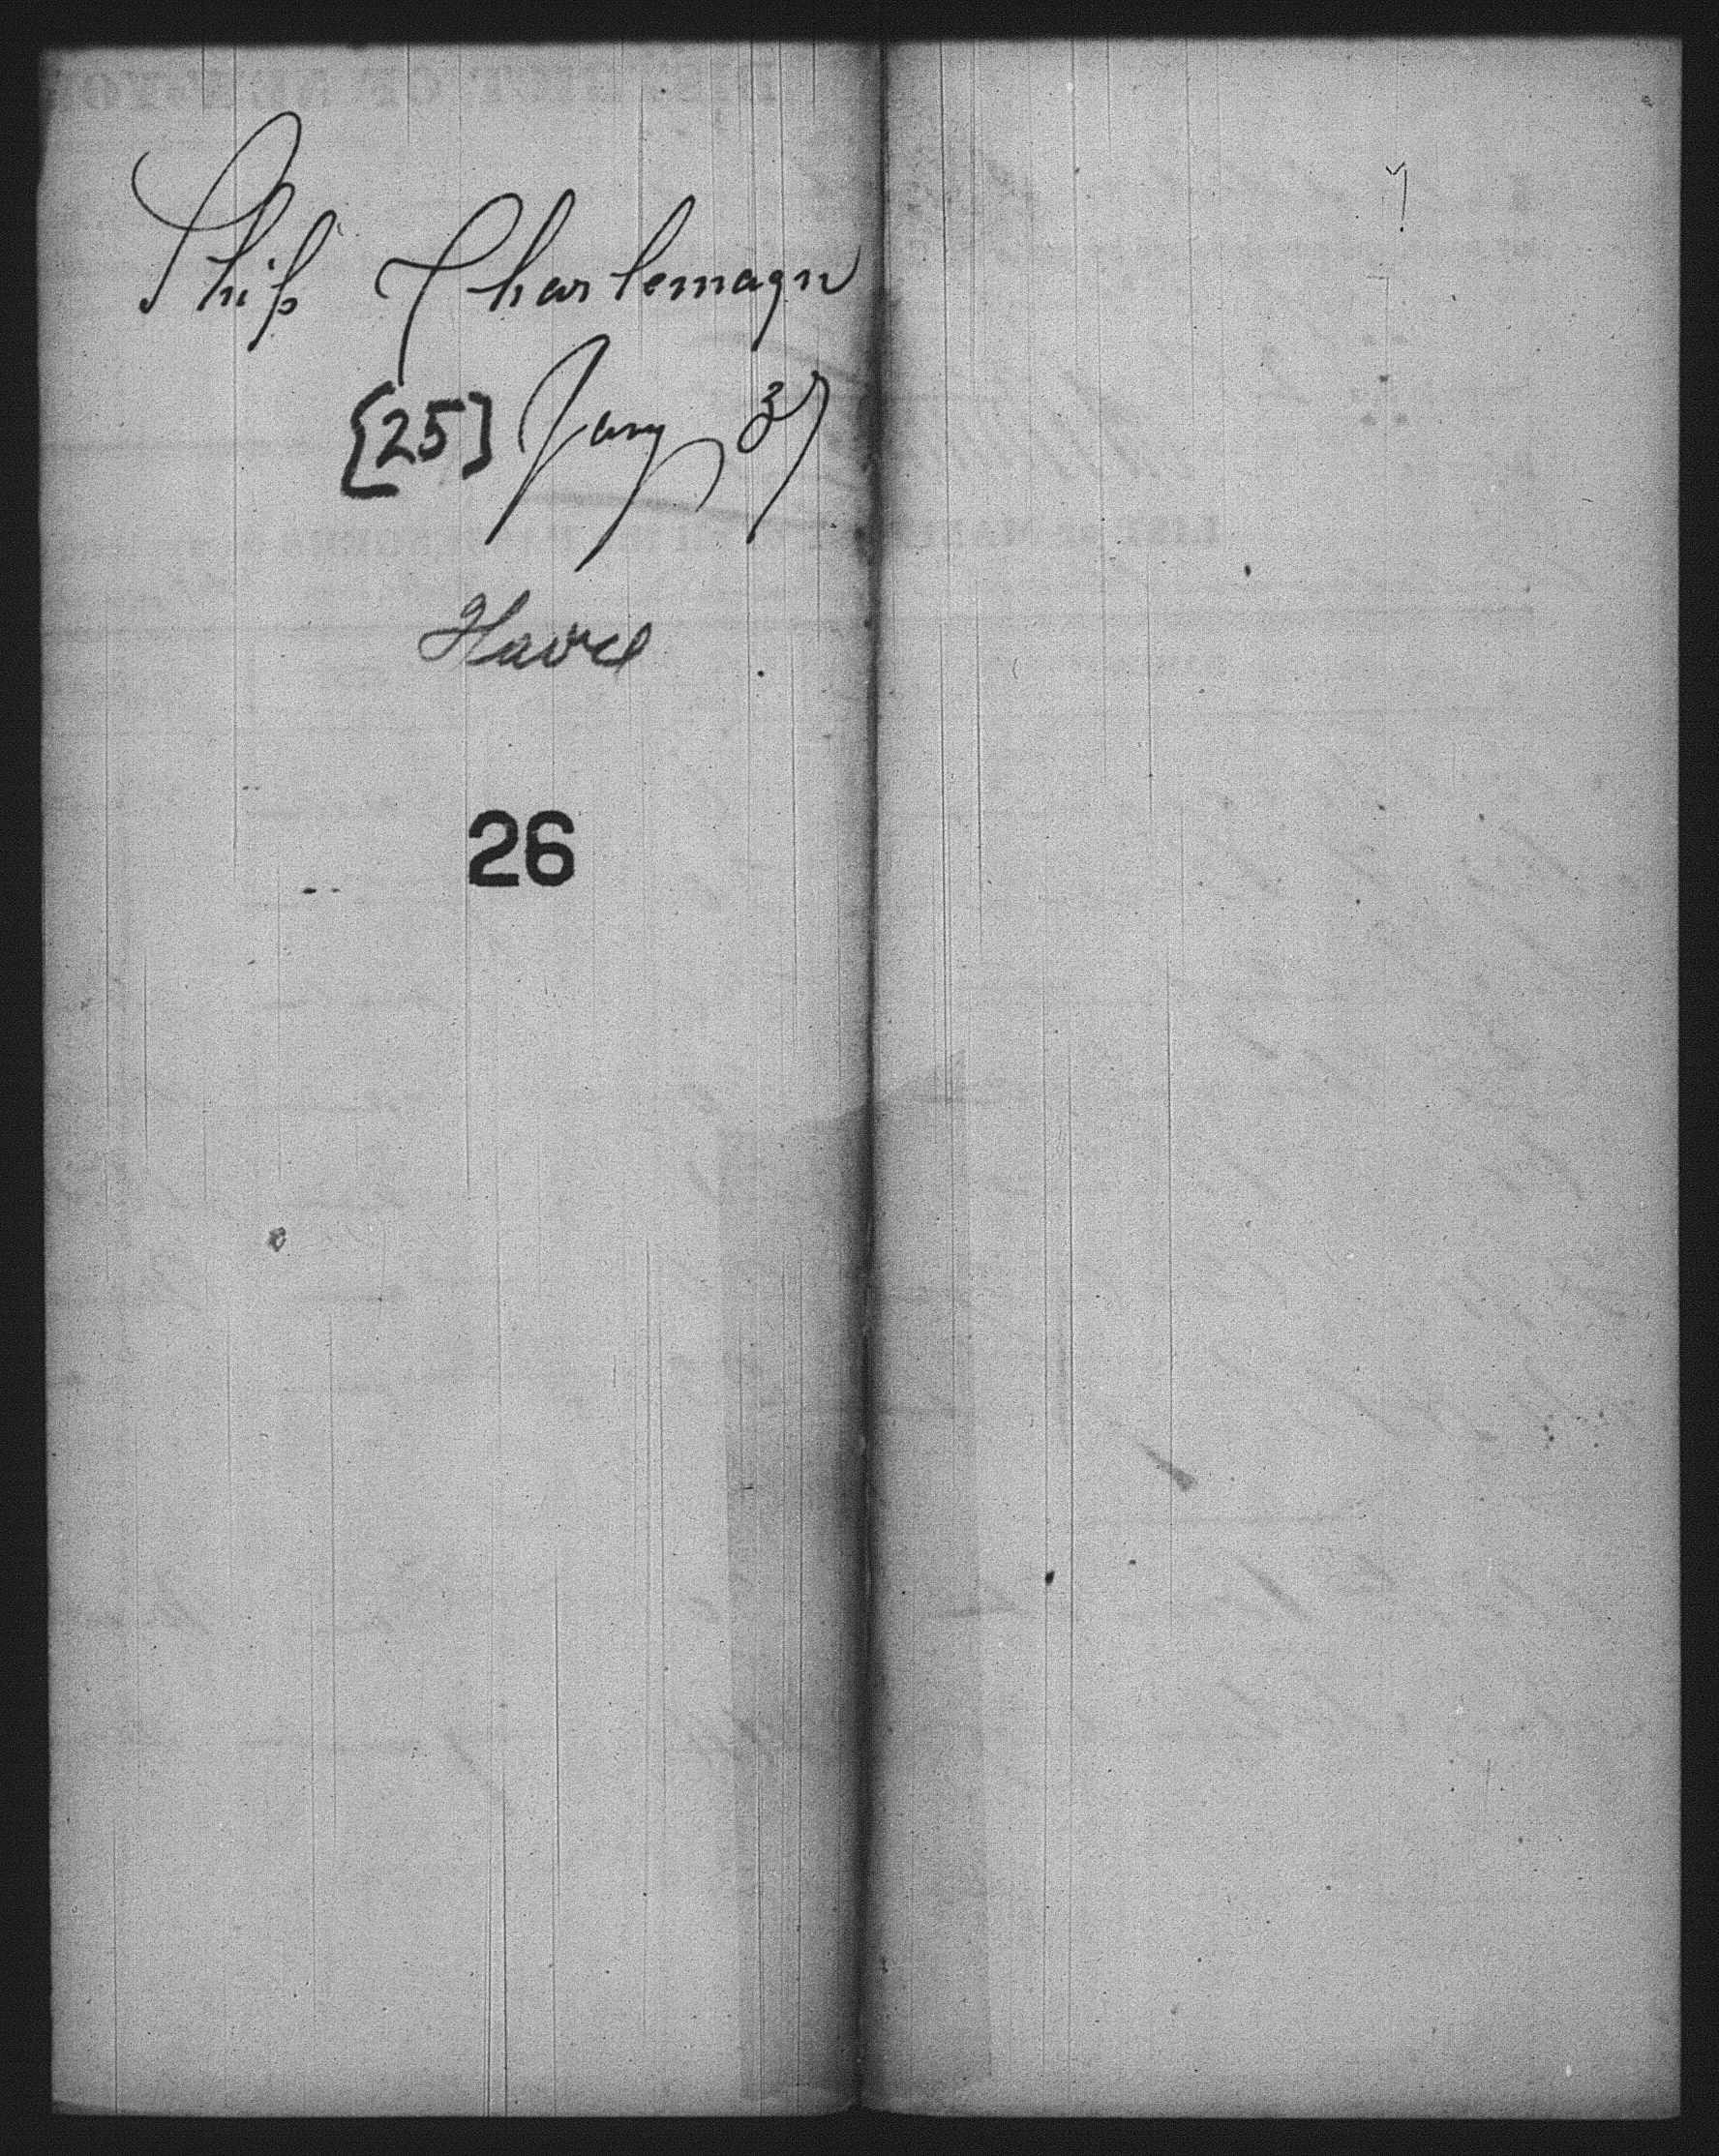 Ship Charlemagn
[25] Jany 37
Havre
26